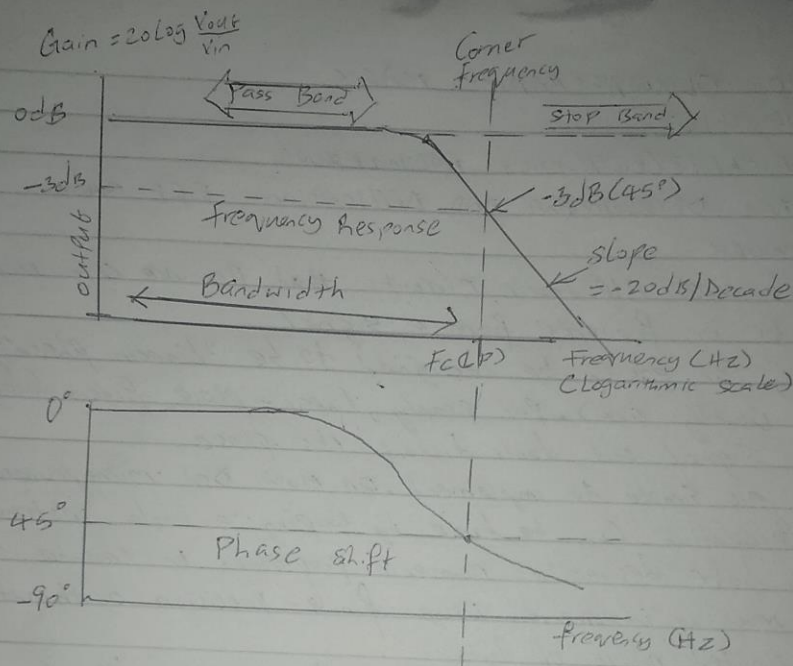 Gain = 20 log Vout/Vin
Corner
frequency
Pass Band
Stop Band
0dB
-3dB
-3dB (45°)
Frequency Response
output
Slope
= -20dB/Decade
Bandwidth
Fc(LP)
Frequency (Hz)
(Logarithmic scale)
0°
45°
Phase shift
-90°
frequency (Hz)